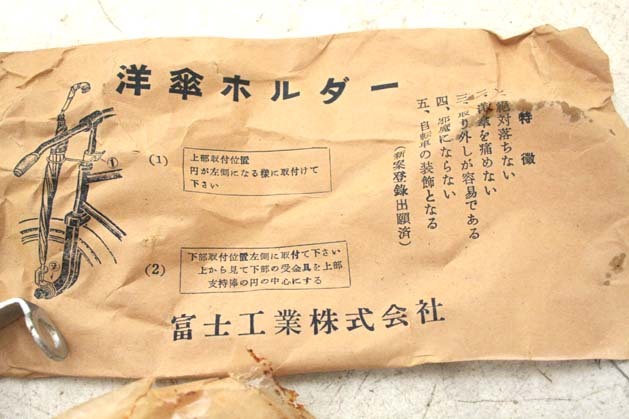 洋傘ホルダー
特徴
一、絶対落ちない
二、洋傘を痛めない
三、取り外しが容易である
四、邪魔にならない
五、自転車の装飾となる
(新案登録出願済)
(1)
上部取付位置
円が左側になる様に取付けて
下さい
(2)
下部取付位置左側に取付て下さい
上から見て下部の受金具を上部
支持棒の円の中心にする
富士工業株式会社